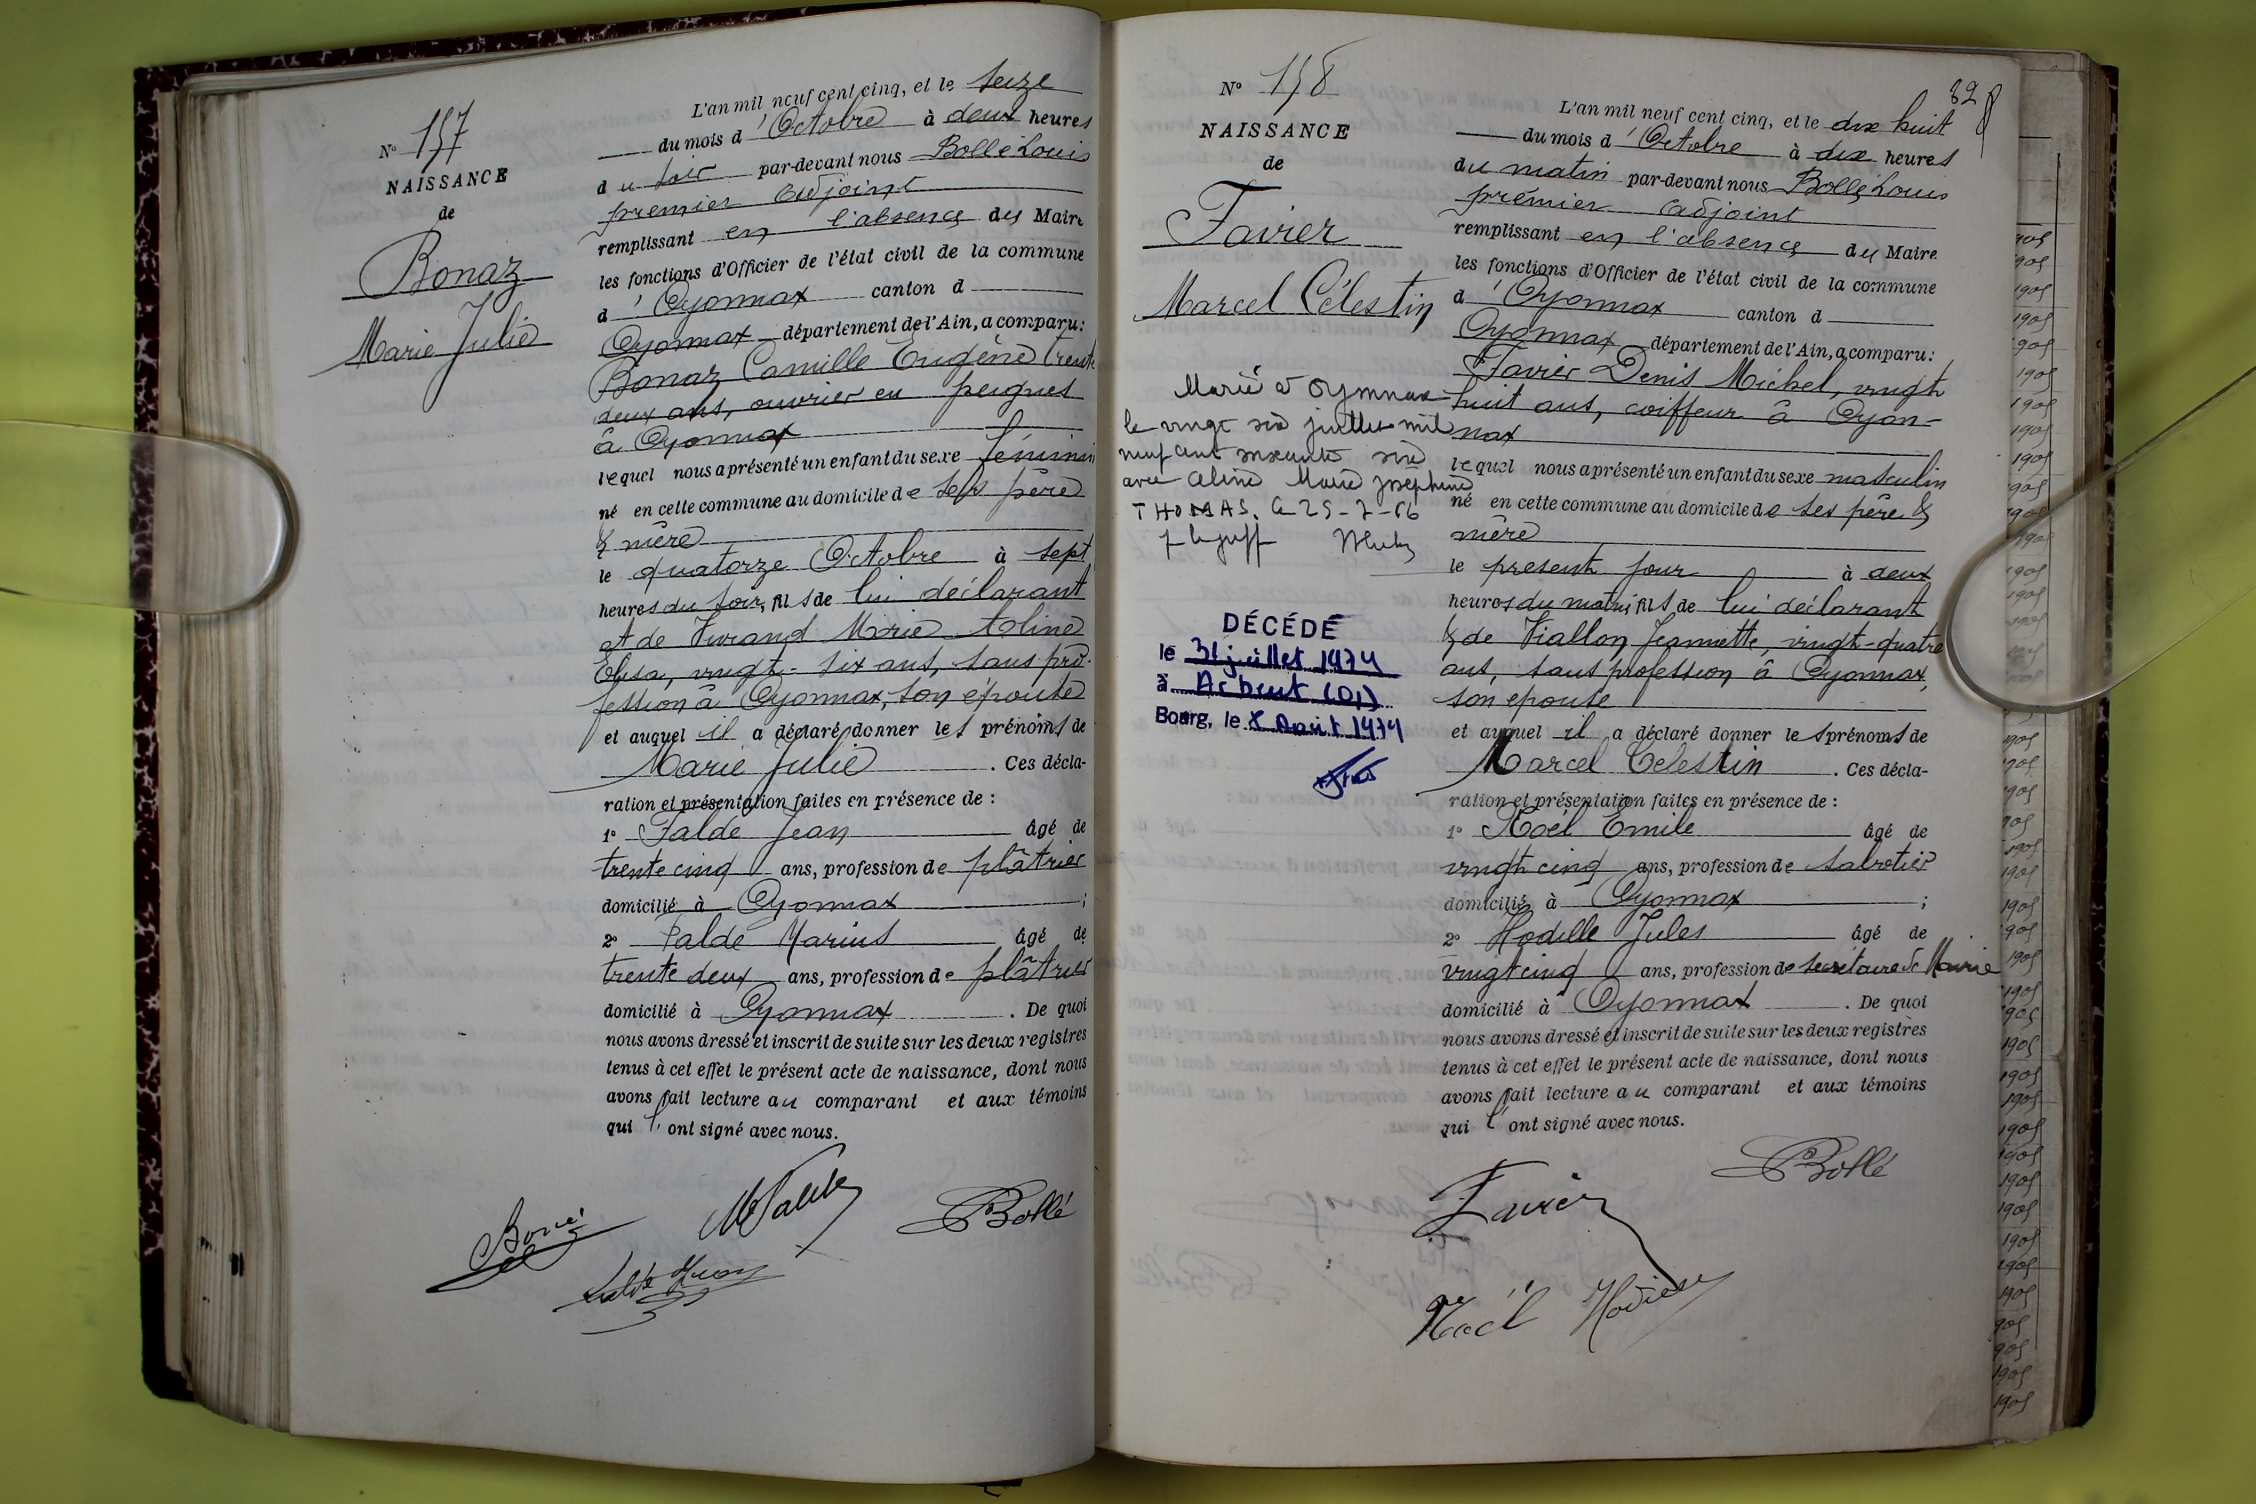 N° 157
NAISSANCE
de
Bonaz
Marie Julie
L'an mil neuf cent cinq, et le seize
du mois d'Octobre à deux heures
du soir par-devant nous Bollé Louis
premier adjoint
remplissant en l'absence du Maire
les fonctions d'Officier de l'état civil de la commune
d'Oyonnax canton d
Oyonnax département de l'Ain, a comparu:
Bonaz Camille Eugène trente
deux ans, ouvrier en peignes
à Oyonnax
lequel nous a présenté un enfant du sexe féminin
né en cette commune au domicile de ses père
& mère
le quatorze Octobre à sept
heures du soir, fils de lui déclarant
et de Marie Aline
Elisa, vingt-six ans, sans pro-
fession à Oyonnax, son épouse
et auquel il a déclaré donner les prénoms de
Marie Julie. Ces décla-
ration et présentation faites en présence de :
1° Falde Jean âgé de
trente cinq ans, profession de plâtrier
domicilié à Oyonnax ;
2° Falde Marius âgé de
trente deux ans, profession de plâtrier
domicilié à Oyonnax. De quoi
nous avons dressé et inscrit de suite sur les deux registres
tenus à cet effet le présent acte de naissance, dont nous
avons fait lecture au comparant et aux témoins
qui l'ont signé avec nous.
Bollé
82
N° 158
NAISSANCE
de
Favier
Marcel Célestin
Marié à Oyonnax
le vingt six juillet mil
neuf cent soixante six
avec Aline Marie Joséphine
THOMAS.
DÉCÉDÉ
le 31 juillet 1974
à Arbent (01)
Bourg, le 8 Août 1974
L'an mil neuf cent cinq, et le dix huit
du mois d'Octobre à dix heures
du matin par-devant nous Bollé Louis
premier adjoint
remplissant en l'absence du Maire
les fonctions d'Officier de l'état civil de la commune
d'Oyonnax canton d
Oyonnax département de l'Ain, a comparu:
Favier Denis Michel, vingt
huit ans, coiffeur à Oyon-
nax
lequel nous a présenté un enfant du sexe masculin
né en cette commune au domicile de ses père &
mère
le présent jour à deux
heures du matin, fils de lui déclarant
& de Viallon Jeannette, vingt-quatre
ans, sans profession à Oyonnax,
son épouse
et auquel il a déclaré donner les prénoms de
Marcel Célestin. Ces décla-
ration et présentation faites en présence de :
1° Noël Emile âgé de
vingt cinq ans, profession de sabotier
domicilié à Oyonnax ;
2° Hodille Jules âgé de
vingt cinq ans, profession de secrétaire de Mairie
domicilié à Oyonnax. De quoi
nous avons dressé et inscrit de suite sur les deux registres
tenus à cet effet le présent acte de naissance, dont nous
avons fait lecture au comparant et aux témoins
qui l'ont signé avec nous.
Bollé
Favier
Noël